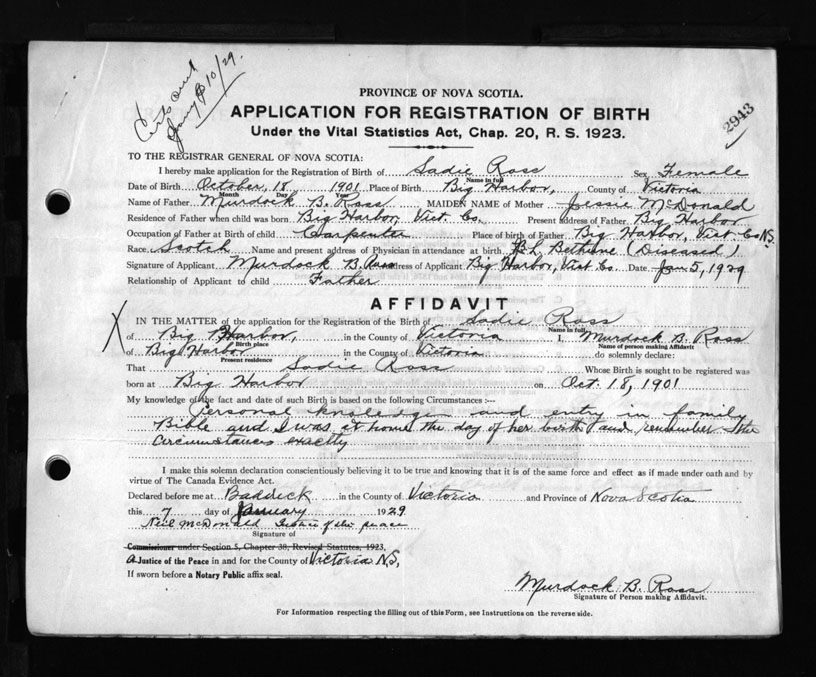 Certs sent
Jany 10/29.
2943
PROVINCE OF NOVA SCOTIA.
APPLICATION FOR REGISTRATION OF BIRTH
Under the Vital Statistics Act, Chap. 20, R. S. 1923.
TO THE REGISTRAR GENERAL OF NOVA SCOTIA:
I hereby make application for the Registration of Birth of Sadie Ross Sex Female
Name in full
Date of Birth October, 18 1901 Place of Birth Big Harbor, County of Victoria
Month Day Year
Name of Father Murdock B. Ross MAIDEN NAME of Mother Jessie McDonald
Residence of Father when child was born Big Harbor Vict. Co. Present address of Father Big Harbor
Occupation of Father at Birth of child Carpenter Place of birth of Father Big Harbor, Vict. Co N.S.
Race Scotch Name and present address of Physician in attendance at birth Bethune (Diseased)
Signature of Applicant Murdock B. Ross Address of Applicant Big Harbor, Vict. Co. Date Jan 5, 1929
Relationship of Applicant to child Father
AFFIDAVIT
X
IN THE MATTER of the application for the Registration of the Birth of Sadie Ross
Name in full
of Big Harbor, in the County of Victoria I, Murdock B. Ross
Birth place Name of person making Affidavit
of Big Harbor in the County of Victoria do solemnly declare:
Present residence
That Sadie Ross Whose Birth is sought to be registered was
born at Big Harbor on Oct. 18, 1901
My knowledge of the fact and date of such Birth is based on the following Circumstances :--
Personal knowledge and entry in family
Bible and I was at home the day of her birth and remember the
circumstances exactly
I make this solemn declaration conscientiously believing it to be true and knowing that it is of the same force and effect as if made under oath and by
virtue of The Canada Evidence Act.
Declared before me at Baddeck in the County of Victoria and Province of Nova Scotia
this 7 day of January 1929
Neil McDonald Justice of the peace
Signature of
Commissioner under Section 5, Chapter 38, Revised Statutes, 1923,
a Justice of the Peace in and for the County of Victoria N.S,
If sworn before a Notary Public affix seal.
Murdock B. Ross
Signature of Person making Affidavit.
For Information respecting the filling out of this Form, see Instructions on the reverse side.